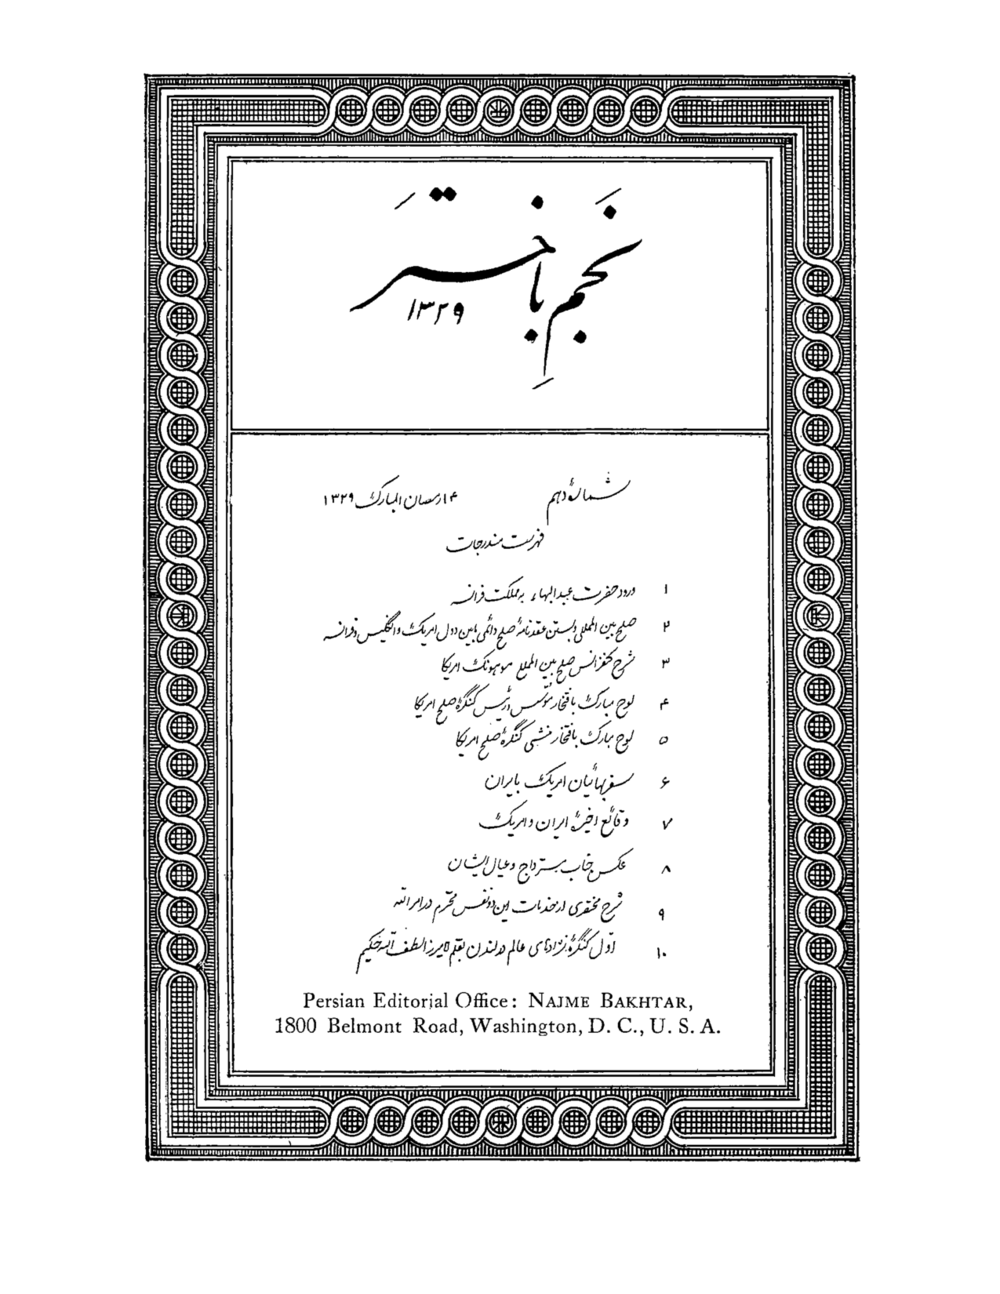 نجم باختر
۱۳۲۹
شمارهٔ دهم ۱۴ رمضان المبارک ۱۳۲۹
فهرست مندرجات
۱ ورود حضرت عبدالبهاء به مملکت فرانسه
۲ صلح بین المللی و بستن عقدنامهٔ صلح دائمی مابین دول امریک و انگلیس و فرانسه
۳ شرح کنفرانس صلح بین المللی موهونک امریکا
۴ لوح مبارک بافتخار مؤسس و رئیس کنگرهٔ صلح امریکا
۵ لوح مبارک بافتخار منشی کنگرهٔ صلح امریکا
۶ سفر بهائیان امریک بایران
۷ وقائع اخیرهٔ ایران و امریک
۸ عکس جناب مستر داج و عیال ایشان
۹ شرح مختصری از خدمات این دو نفس محترم در امرالله
۱۰ اوّل کنگرهٔ نژادهای عالم در لندن بقلم میرزا لطف الله حکیم
Persian Editorial Office: NAJME BAKHTAR,
1800 Belmont Road, Washington, D. C., U. S. A.